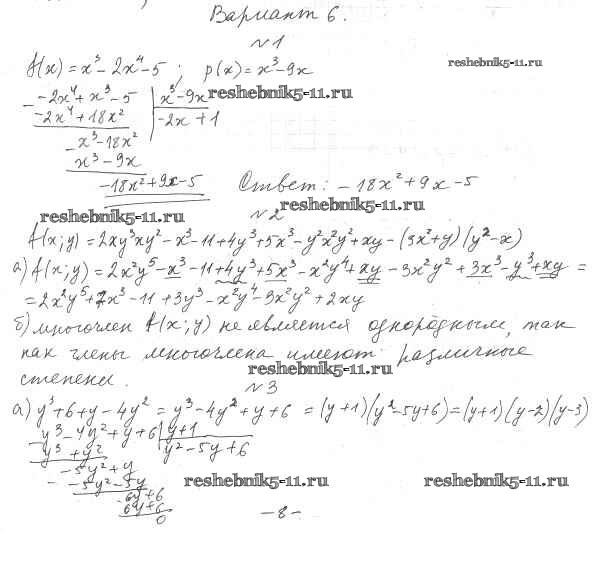 Вариант 6.
№1
f(x) = x³ - 2x⁴ - 5 ; p(x) = x³ - 9x
reshebnik5-11.ru
-2x⁴ + x³ - 5 | x³ - 9x
reshebnik5-11.ru
-2x⁴ + 18x² | -2x + 1
x³ - 18x²
x³ - 9x
-18x² + 9x - 5 Ответ: -18x² + 9x - 5
reshebnik5-11.ru
reshebnik5-11.ru
№2
f(x;y) = 2xy³xy² - x³ - 11 + 4y³ + 5x³ - y²x²y² + xy - (3x² + y)(y² - x)
а) f(x;y) = 2x²y⁵ - x³ - 11 + 4y³ + 5x³ - x²y⁴ + xy - 3x²y² + 3x³ - y³ + xy =
= 2x²y⁵ + 7x³ - 11 + 3y³ - x²y⁴ - 3x²y² + 2xy
б) многочлен f(x;y) не является однородным, так
как члены многочлена имеют различные
reshebnik5-11.ru
степени.
№3
а) y³ + 6 + y - 4y² = y³ - 4y² + y + 6 = (y + 1)(y² - 5y + 6) = (y + 1)(y - 2)(y - 3)
y³ - 4y² + y + 6 | y + 1
y³ + y² | y² - 5y + 6
-5y² + y
-5y² - 5y
reshebnik5-11.ru
reshebnik5-11.ru
6y + 6
6y + 6
0
- 8 -